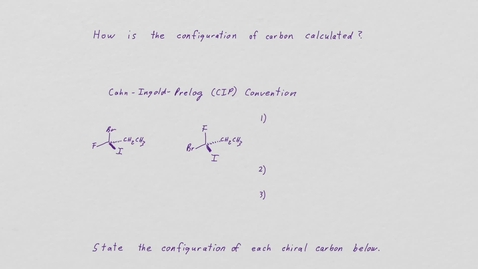 How is the configuration of carbon calculated?
Cahn-Ingold-Prelog (CIP) Convention
1)
Br
F
CH2CH3
I
F
Br
CH2CH3
I
2)
3)
State the configuration of each chiral carbon below.